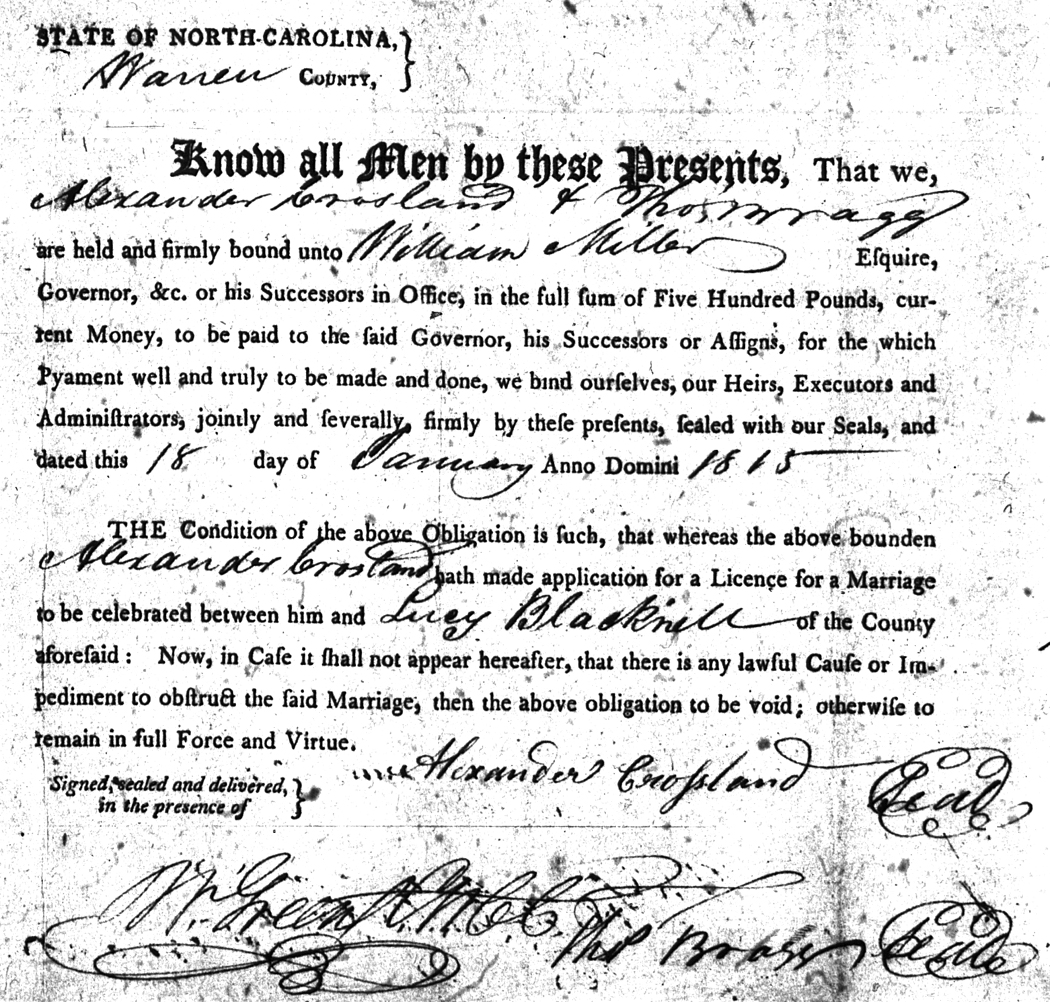 STATE OF NORTH-CAROLINA,
Warren COUNTY,
Know all Men by these Presents, That we,
Alexander Crosland & Thos Bragg
are held and firmly bound unto William Miller Eſquire,
Governor, &c. or his Successors in Office, in the full ſum of Five Hundred Pounds, cur-
rent Money, to be paid to the ſaid Governor, his Successors or Aſſigns, for the which
Pyament well and truly to be made and done, we bind ourſelves, our Heirs, Executors and
Adminiſtrators, jointly and ſeverally, firmly by theſe preſents, ſealed with our Seals, and
dated this 18 day of January Anno Domini 1815
THE Condition of the above Obligation is ſuch, that whereas the above bounden
Alexander Crosland hath made application for a Licence for a Marriage
to be celebrated between him and Lucy Blacknell of the County
aforeſaid: Now, in Caſe it ſhall not appear hereafter, that there is any lawful Cauſe or Im-
pediment to obſtruct the ſaid Marriage, then the above obligation to be void; otherwiſe to
remain in full Force and Virtue.
Alexander Croſsland Seal
Signed, sealed and delivered,
in the presence of
Wm Green
Thos Bragg Seal